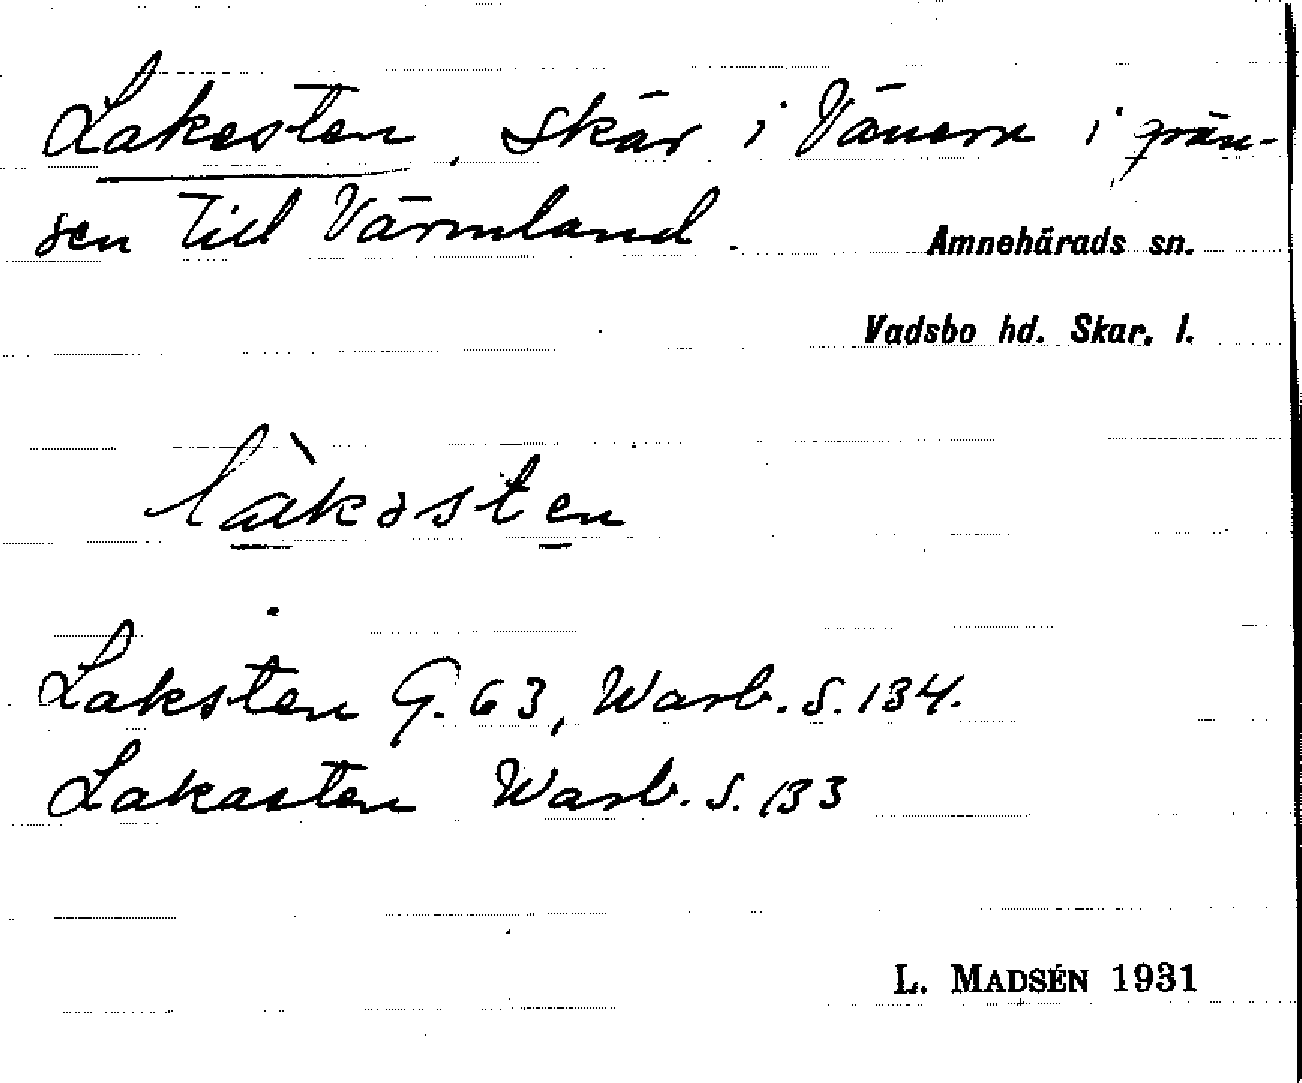 Lakesten, skär i Vänern i grän-
sen till Värmland.
Amnehärads sn.
Vadsbo hd. Skar. l.
là̱kəste̱n
Laksten G. 63, Warb. s. 134.
Lakasten Warb. s. 133
L. MADSÉN 1931